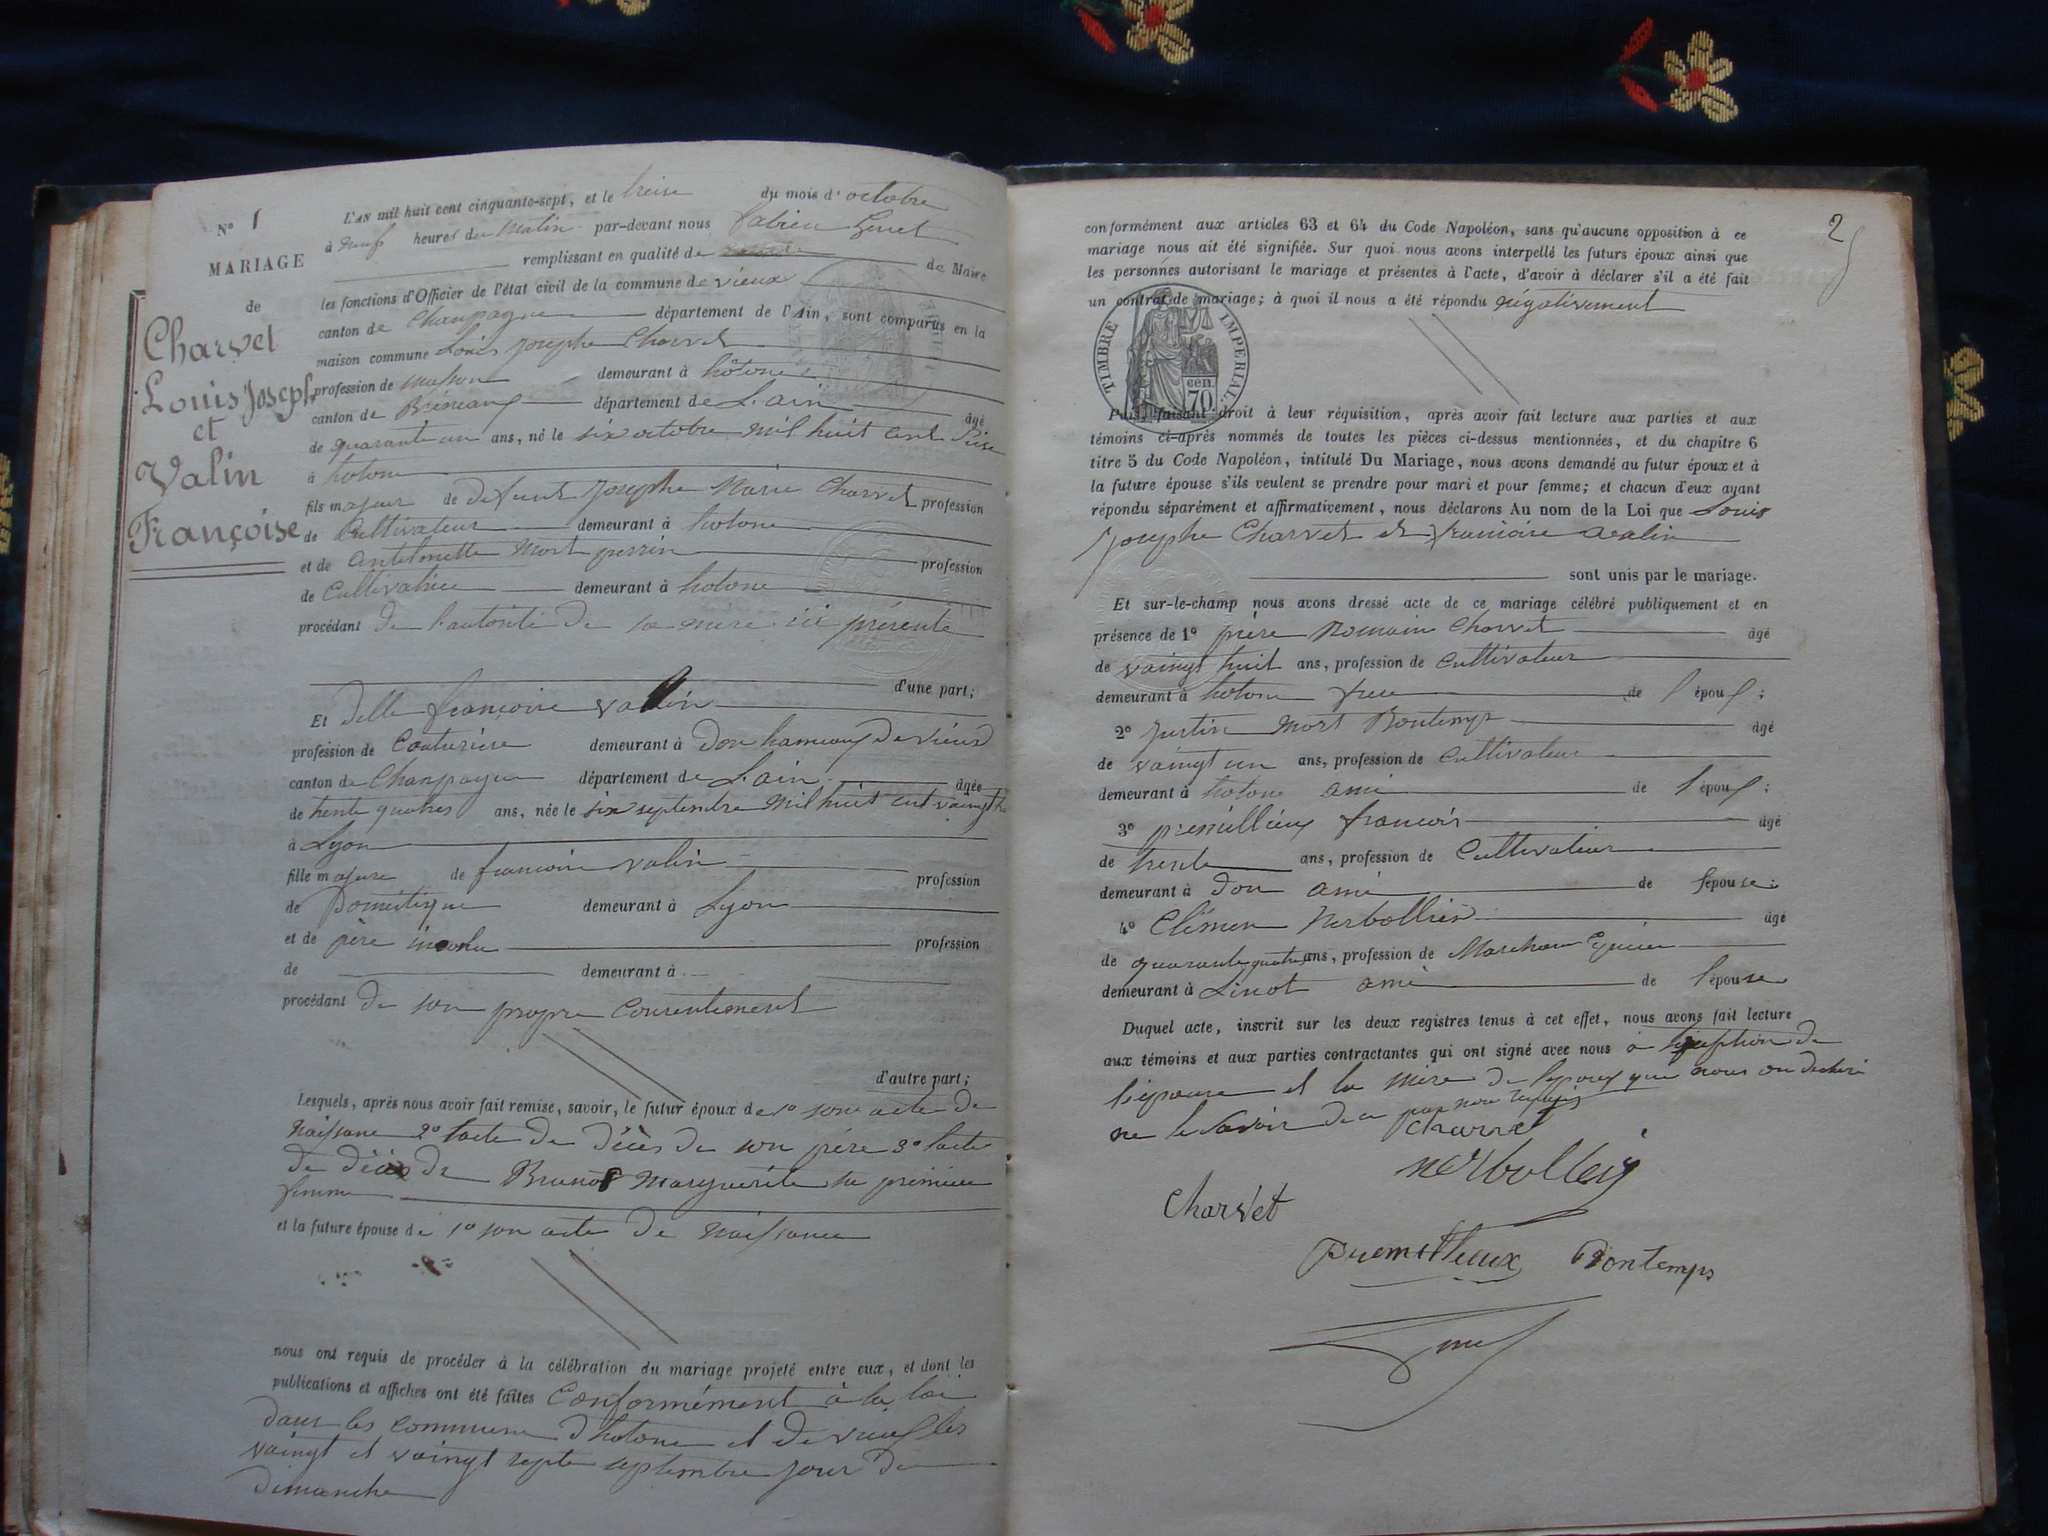 N° 1
MARIAGE
de
Charvet
Louis Joseph
et
Valin
Françoise
L'AN mil huit cent cinquante-sept, et le treise du mois d'octobre
à neuf heures du Matin par-devant nous fabien
remplissant en qualité de de Maire
les fonctions d'Officier de l'état civil de la commune de vieux
canton de Champagne département de l'Ain, sont comparus en la
maison commune Louis Josephe Charvet
profession de masson demeurant à hotone
canton de Brenean département de L'ain âgé
de quarante un ans, né le six octobre mil huit cent seise
à hotone
fils majeur de defeunt Josephe Marie Charvet profession
de Cultivateur demeurant à hotone
et de antelmette Mort perrin profession
de Cultivatrice demeurant à hotone
procédant de l'autorité de sa mère ici présente
d'une part;
Et delle françoise valin
profession de Couturière demeurant à Don hameaux de vieux
canton de Champagne département de L'ain âgée
de trente quatres ans, née le six septembre mil huit cent vaingt
à Lyon
fille majeure de francoise valin profession
de Domestique demeurant à Lyon
et de père inconlu profession
de demeurant à
procédant de son propre consentement
d'autre part;
Lesquels, après nous avoir fait remise, savoir, le futur époux de 1° son acte de
naissane 2° lacte de décès de son père 3° lacte
de décès de Brunot Marguerite sa première
femme
et la future épouse de 1° son acte de naissance
nous ont requis de procéder à la célébration du mariage projeté entre eux, et dont les
publications et affiches ont été faites Conformément à la loi
dans les commune d'hotone et de vieux les
vaingt et vaingt septe septembre jour de
dimanche
2
conformément aux articles 63 et 64 du Code Napoléon, sans qu'aucune opposition à ce
mariage nous ait été signifiée. Sur quoi nous avons interpellé les futurs époux ainsi que
les personnes autorisant le mariage et présentes à l'acte, d'avoir à déclarer s'il a été fait
un contrat de mariage; à quoi il nous a été répondu négativement
TIMBRE IMPERIAL
70 cen.
Puis, faisant droit à leur réquisition, après avoir fait lecture aux parties et aux
témoins ci-après nommés de toutes les pièces ci-dessus mentionnées, et du chapitre 6
titre 5 du Code Napoléon, intitulé Du Mariage, nous avons demandé au futur époux et à
la future épouse s'ils veulent se prendre pour mari et pour femme; et chacun d'eux ayant
répondu séparément et affirmativement, nous déclarons Au nom de la Loi que Louis
Josephe Charvet et francoise valin
sont unis par le mariage.
Et sur-le-champ nous avons dressé acte de ce mariage célébré publiquement et en
présence de 1° Romain Charvet âgé
de vaingt huit ans, profession de Cultivateur
demeurant à hotone frere de l'époux;
2° Justin Mort Bontemps âgé
de vaingt un ans, profession de Cultivateur
demeurant à hotone ami de l'époux;
3° premillieux francois âgé
de trente ans, profession de Cultivateur
demeurant à Don ami de l'épouse;
4° Clémen Nerbollier âgé
de quarante quatre ans, profession de Marchan Epicier
demeurant à Linot ami de l'épouse
Duquel acte, inscrit sur les deux registres tenus à cet effet, nous avons fait lecture
aux témoins et aux parties contractantes qui ont signé avec nous a l'exseption de
l'épouse et la mère de l'epoux que nous on declaré
ne le savoir de ce par nou requis
Charvet
nerbolleis
Charvet
Premillieux Bontemps